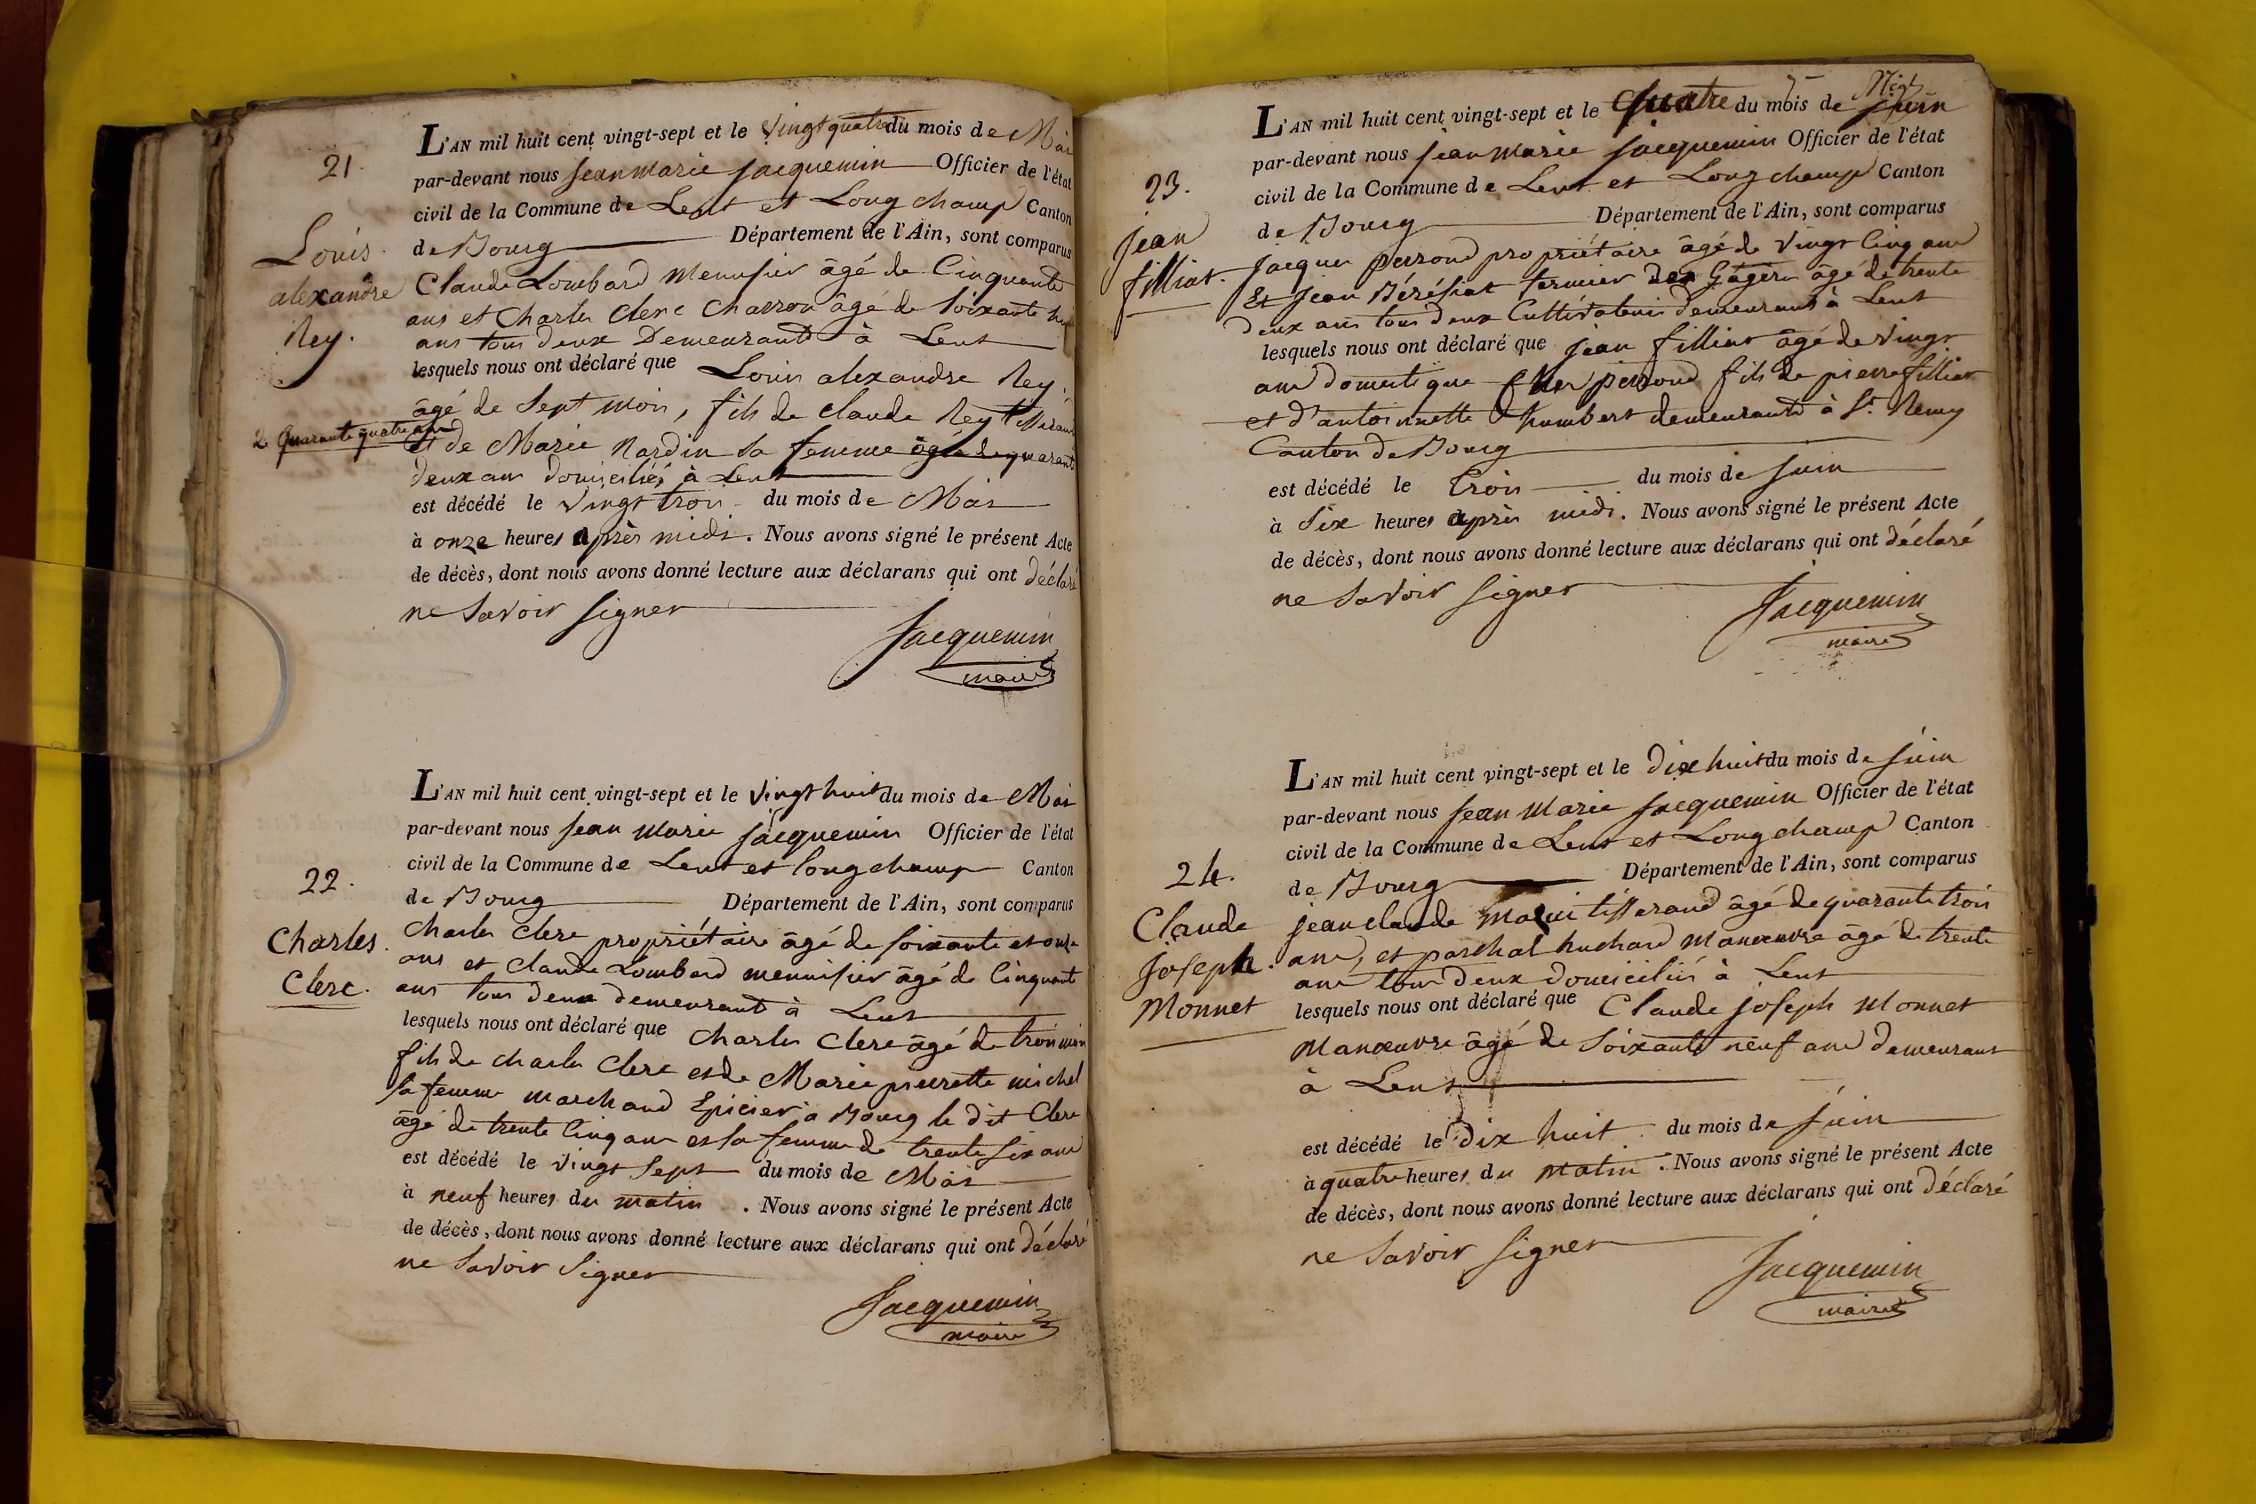 21.
Louis
alexandre
Rey.
de quarante quatre ans
L'AN mil huit cent vingt-sept et le vingt quatre du mois de Mai
par-devant nous jean marie jacquemin Officier de l'état
civil de la Commune de Lent et Longchamp Canton
de Bourg Département de l'Ain, sont comparus
Claude Lombard Menuisier âgé de Cinquante
ans et Charles Clerc Charron âgé de Soixante
ans tous deux Demeurants à Lent
lesquels nous ont déclaré que Louis alexandre Rey
âgé de Sept mois, fils de claude Rey tisserand
et de Marie Nardin sa femme âgée de quarante
deux ans domiciliés à Lent
est décédé le vingt trois du mois de Mai
à onze heures après midi. Nous avons signé le présent Acte
de décès, dont nous avons donné lecture aux déclarans qui ont déclaré
ne Savoir signer
Jacquemin
maire
22.
Charles
Clerc.
L'AN mil huit cent vingt-sept et le vingt huit du mois de Mai
par-devant nous jean marie jacquemin Officier de l'état
civil de la Commune de Lent et longchamp Canton
de Bourg Département de l'Ain, sont comparus
Charles Clerc propriétaire âgé de soixante et onze
ans et Claude Lombard menuisier âgé de Cinquante
ans tous deux demeurant à Lent
lesquels nous ont déclaré que Charles Clerc âgé de trois mois
fils de charles Clerc et de Marie pierrette michel
sa femme marchand Epicier à Bourg le dit Clerc
âgé de trente cinq ans et sa femme de trente six ans
est décédé le vingt sept du mois de Mai
à neuf heures du matin. Nous avons signé le présent Acte
de décès, dont nous avons donné lecture aux déclarans qui ont déclaré
ne Savoir Signer
Jacquemin
maire
23.
jean
filliat.
L'AN mil huit cent vingt-sept et le quatre du mois de juin
par-devant nous jean marie jacquemin Officier de l'état
civil de la Commune de Lent et Longchamp Canton
de Bourg Département de l'Ain, sont comparus
jacques perroud propriétaire âgé de vingt cinq ans
Et jean Béréfiat fermier des Gagère âgé de trente
deux ans tous deux Cultivateurs demeurants à Lent
lesquels nous ont déclaré que jean filliat âgé de vingt
ans domestique chez perroud fils de pierre filliat
et d'antoinette humbert demeurants à St. Remy
Canton de Bourg
est décédé le trois du mois de juin
à Six heures après midi. Nous avons signé le présent Acte
de décès, dont nous avons donné lecture aux déclarans qui ont déclaré
ne Savoir signer
Jacquemin
maire
24.
Claude
joseph.
Monnet
L'AN mil huit cent vingt-sept et le dix huit du mois de juin
par-devant nous jean marie jacquemin Officier de l'état
civil de la Commune de Lent et Longchamp Canton
de Bourg Département de l'Ain, sont comparus
jean claude tisserand âgé de quarante trois
ans, et paschal huchard Manœuvre âgé de trente
ans tous deux domiciliés à Lent
lesquels nous ont déclaré que Claude joseph Monnet
Manœuvre âgé de Soixante neuf ans demeurant
à Lent
est décédé le dix huit du mois de juin
à quatre heures du matin. Nous avons signé le présent Acte
de décès, dont nous avons donné lecture aux déclarans qui ont déclaré
ne Savoir signer
Jacquemin
maire